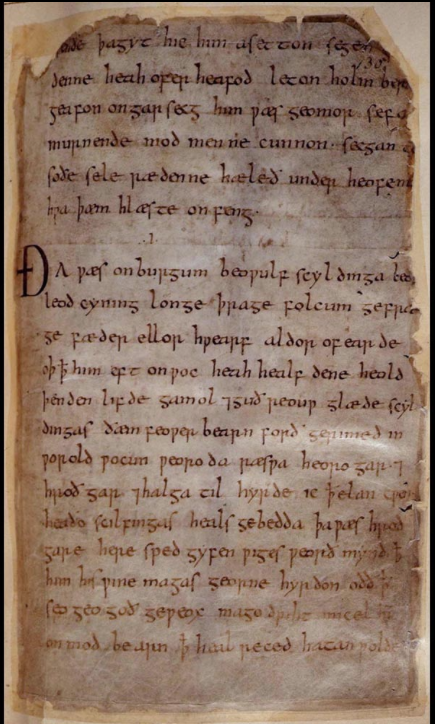 þa gyt hie him asetton segen
denne heah ofer heafod leton holm
geafon on garsecg him ƿæs geomor sefa
murnende mod men ne cunnon · secgan
soðe sele rædenne hæleð under
hƿa þæm hlæste onfeng ·
.I.
ÐA ƿæs on burgum beoƿulf scyldinga
leod cyning longe þrage folcum gefræ
ge fæder ellor hƿearf aldor of earde
oþ ꝥ him eft onƿoc heah healf dene heold
þenden lifde gamol ⁊ guð reouƿ glæde scyl
dingas ðæm feoƿer bearn forð gerimed in
ƿorold ƿocun ƿeoroda ræsƿa heoro gar ⁊
hroð gar ⁊ halga til hyrde ic ꝥ elan cƿen
heaðo scilfingas heals gebedda þa ƿæs hroð
gare here sped gyfen ƿiges ƿeorð mynd ꝥ
him his ƿine magas georne hyrdon oðð ꝥ
seo geogoð geƿeox mago driht micel
on mod be arn ꝥ heal reced hatan ƿolde